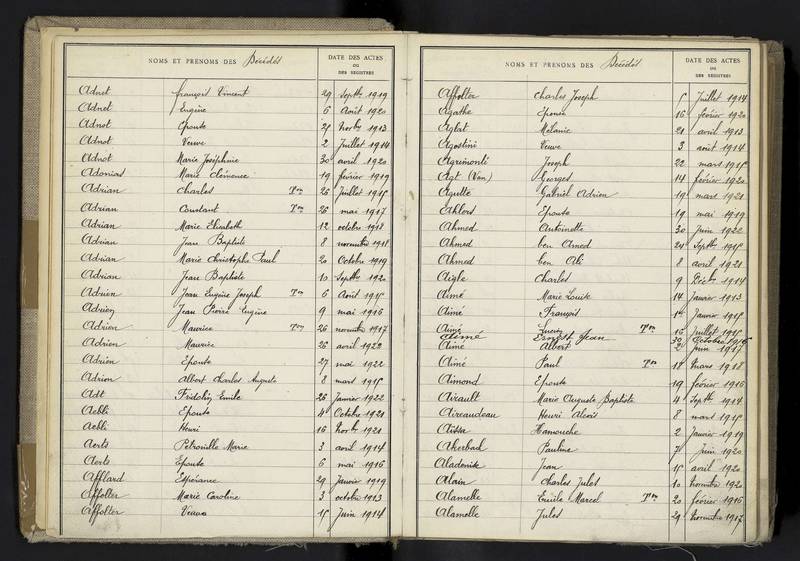 NOMS ET PRÉNOMS DES Décédés
DATE DES ACTES
OU
DES REGISTRES
Adnet François Vincent 29 Septbre 1919
Adnet Eugène 6 Août 1920
Adnot Epouse 25 Novbre 1913
Adnot Veuve 2 Juillet 1914
Adnot Marie Joséphine 30 avril 1920
Adonias Marie Clémence 19 février 1919
Adrian Charles Ton 26 Juillet 1915
Adrian Constant Ton 26 mai 1917
Adrian Marie Elisabeth 12 octobre 1918
Adrian Jean Baptiste 8 novembre 1918
Adrian Marie Christophe Paul 20 Octobre 1919
Adrian Jean Baptiste 10 Septbre 1920
Adrien Jean Eugène Joseph Ton 6 Août 1915
Adrien Jean Pierre Eugène 9 mai 1916
Adrien Maurice Ton 26 novembre 1917
Adrien Maurice 26 avril 1922
Adrien Epouse 27 mai 1922
Adrion Albert Charles Auguste 8 mars 1915
Adt Fridolin Emile 26 Janvier 1922
Aebli Epouse 4 Octobre 1921
Aebli Henri 16 Novbre 1921
Aerts Pétronille Marie 3 avril 1914
Aerts Epouse 6 mai 1916
Afflard Espérance 29 Janvier 1919
Affolter Marie Caroline 3 octobre 1913
Affolter Veuve 15 Juin 1914
NOMS ET PRÉNOMS DES Décédés
DATE DES ACTES
OU
DES REGISTRES
Affolter Charles Joseph 5 Juillet 1914
Agathe Epouse 16 février 1920
Aglat Mélanie 21 avril 1913
Agostini Veuve 3 août 1914
Agrimonti Joseph 22 mars 1915
Agt (Van) Georges 14 février 1920
Agutte Gabriel Adrien 19 mars 1921
Ehlers Epouse 19 mai 1919
Ahmed Antoinette 30 Juin 1922
Ahmed ben Amed 24 Septbre 1915
Ahmed ben Ali 8 avril 1921
Aigle Charles 9 Décbre 1914
Aimé Marie Louise 14 Janvier 1913
Aimé François 1er Janvier 1915
Aimé Lucien Ton 16 Juillet 1915
Aimé Ernest Jean 30 Octobre 1916
Aimé Albert 2 Juin 1917
Aimé Paul Ton 18 Mars 1918
Aimond Epouse 19 février 1916
Airault Marie Auguste Baptiste 4 Septbre 1914
Aireaudeau Henri Alexis 8 mars 1915
Aïssa Hamouche 2 Janvier 1919
Akerbad Pauline 7 Juin 1920
Aladenise Jean 15 avril 1920
Alain Charles Jules 10 novembre 1920
Alamelle Emile Marcel Ton 20 février 1916
Alamelle Jules 29 Novembre 1917